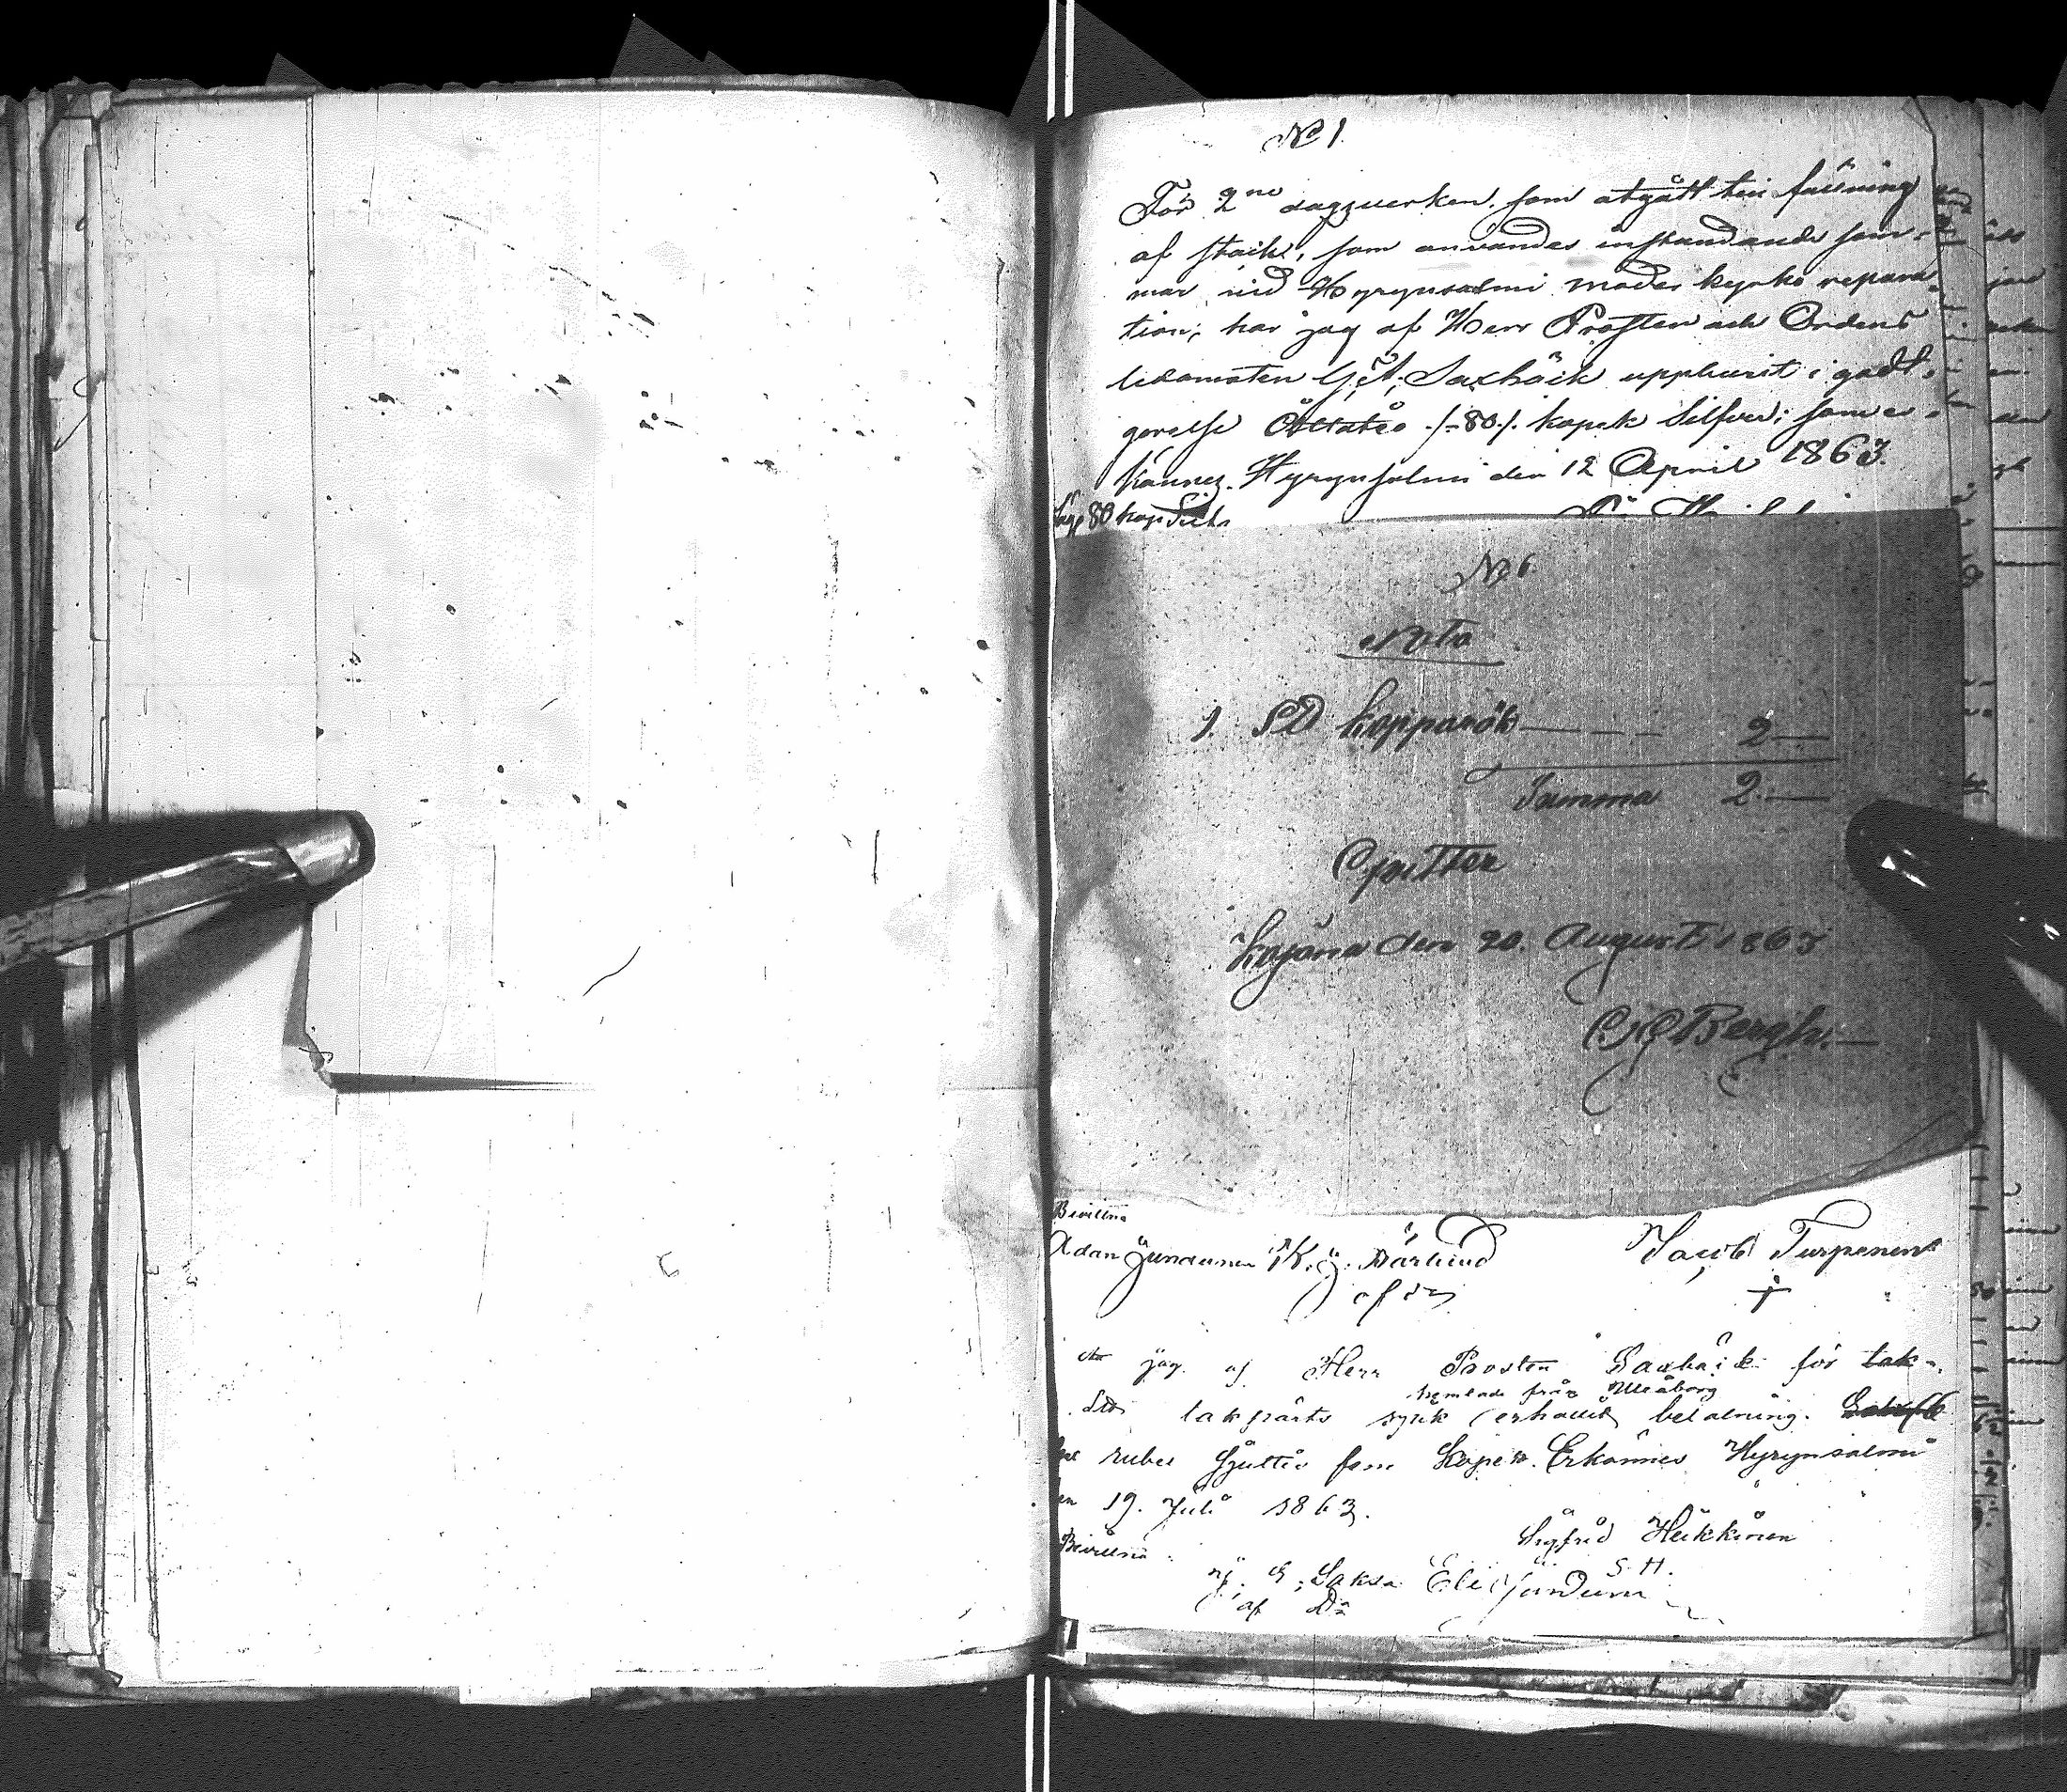 No 1.
För 2ne dagsverken, som åtgått till fällning
af stock, som användes instundande som-
mar vid Hyrynsalmi moder kyrko repara-
tion; har jag af Herr Prosten och Ordens
ledamoten Saxbäck uppburit i godt-
görelse Åttatio /:80:/ kopek Silfver; som er-
kännes. Hyrynsalmi den 12 April 1863.
80 kop Silfv
No 6
Nota
1. LD kopparök — — — 2 —
Summa 2 —
Qvitter
Kajana den 20. Augusti 1863
Bergh.
Bevittna
Adam Juntunen K. J. Härlund Jacob Turpenen
jag af Herr Prosten Saxbäck för tak-
hemtade från Uleåborg
takspårts spik erhållit betalning.
rubel Sjuttio fem Kopek. Erkännes Hyrynsalmi
19. Juli 1863.
Bevittna: Sigfrid Heikkinen
Saksa Eli Juntunen S. H.
af